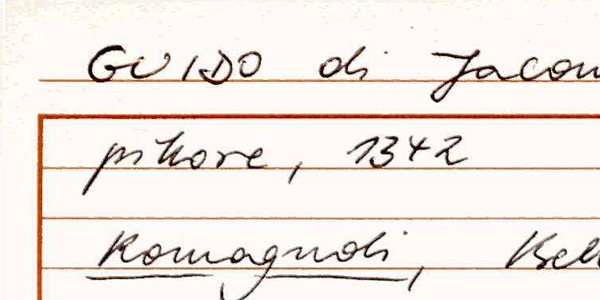 GUIDO di Jacom
pittore, 1342
Romagnoli, Bell